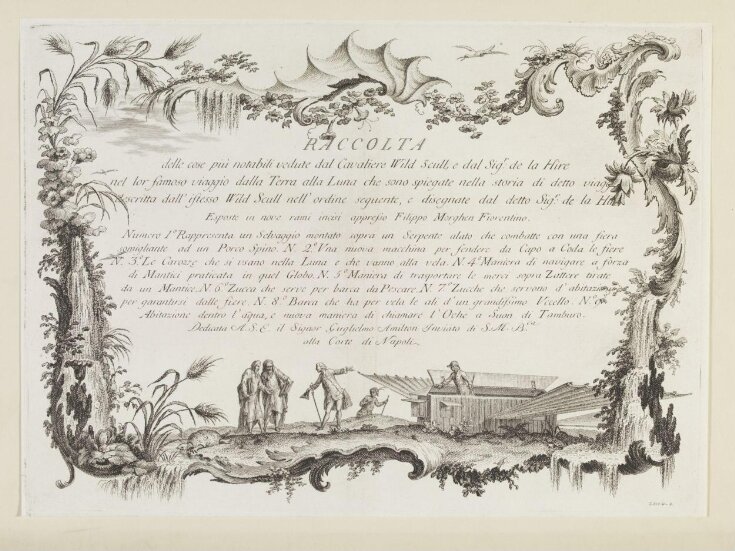 RACCOLTA
delle cose più notabili vedute dal Cavaliere Wild Scull, e dal Sigr. de la Hire
nel lor famoso viaggio dalla Terra alla Luna che sono spiegate nella storia di detto viaggio
descritta dall'istesso Wild Scull nell'ordine seguente, e disegnate dal detto Sigr. de la Hire
Esposte in nove rami incisi appresso Filippo Morghen Fiorentino.
Numero 1º Rappresenta un Selvaggio montato sopra un Serpento alato che combatte con una fiera
somigliante ad un Porco Spino. N. 2º Una nuova macchina per fendere da Capo a Coda le fiere
N. 3º Le Carozze che si usano nella Luna e che vanno alla vela. N. 4º Maniera di navigare a forza
di Mantici praticata in quel Globo. N. 5º Maniera di trasportare le merci sopra Zattere tirate
da un Mantice. N. 6º Zucca che serve per barca da Pescare. N. 7º Zucche che servono d'abitazione
per garantirsi dalle fiere. N. 8º Barca che ha per vela le ali d'un grandissimo Vccello. N. 9º
Abitazione dentro l'aqua, e nuova maniera di chiamare l'Oche a Suon di Tamburo.
Dedicata A. S. E. il Signor Guglielmo Amilton Inviato di S. M. B.ca
alla Corte di Napoli.